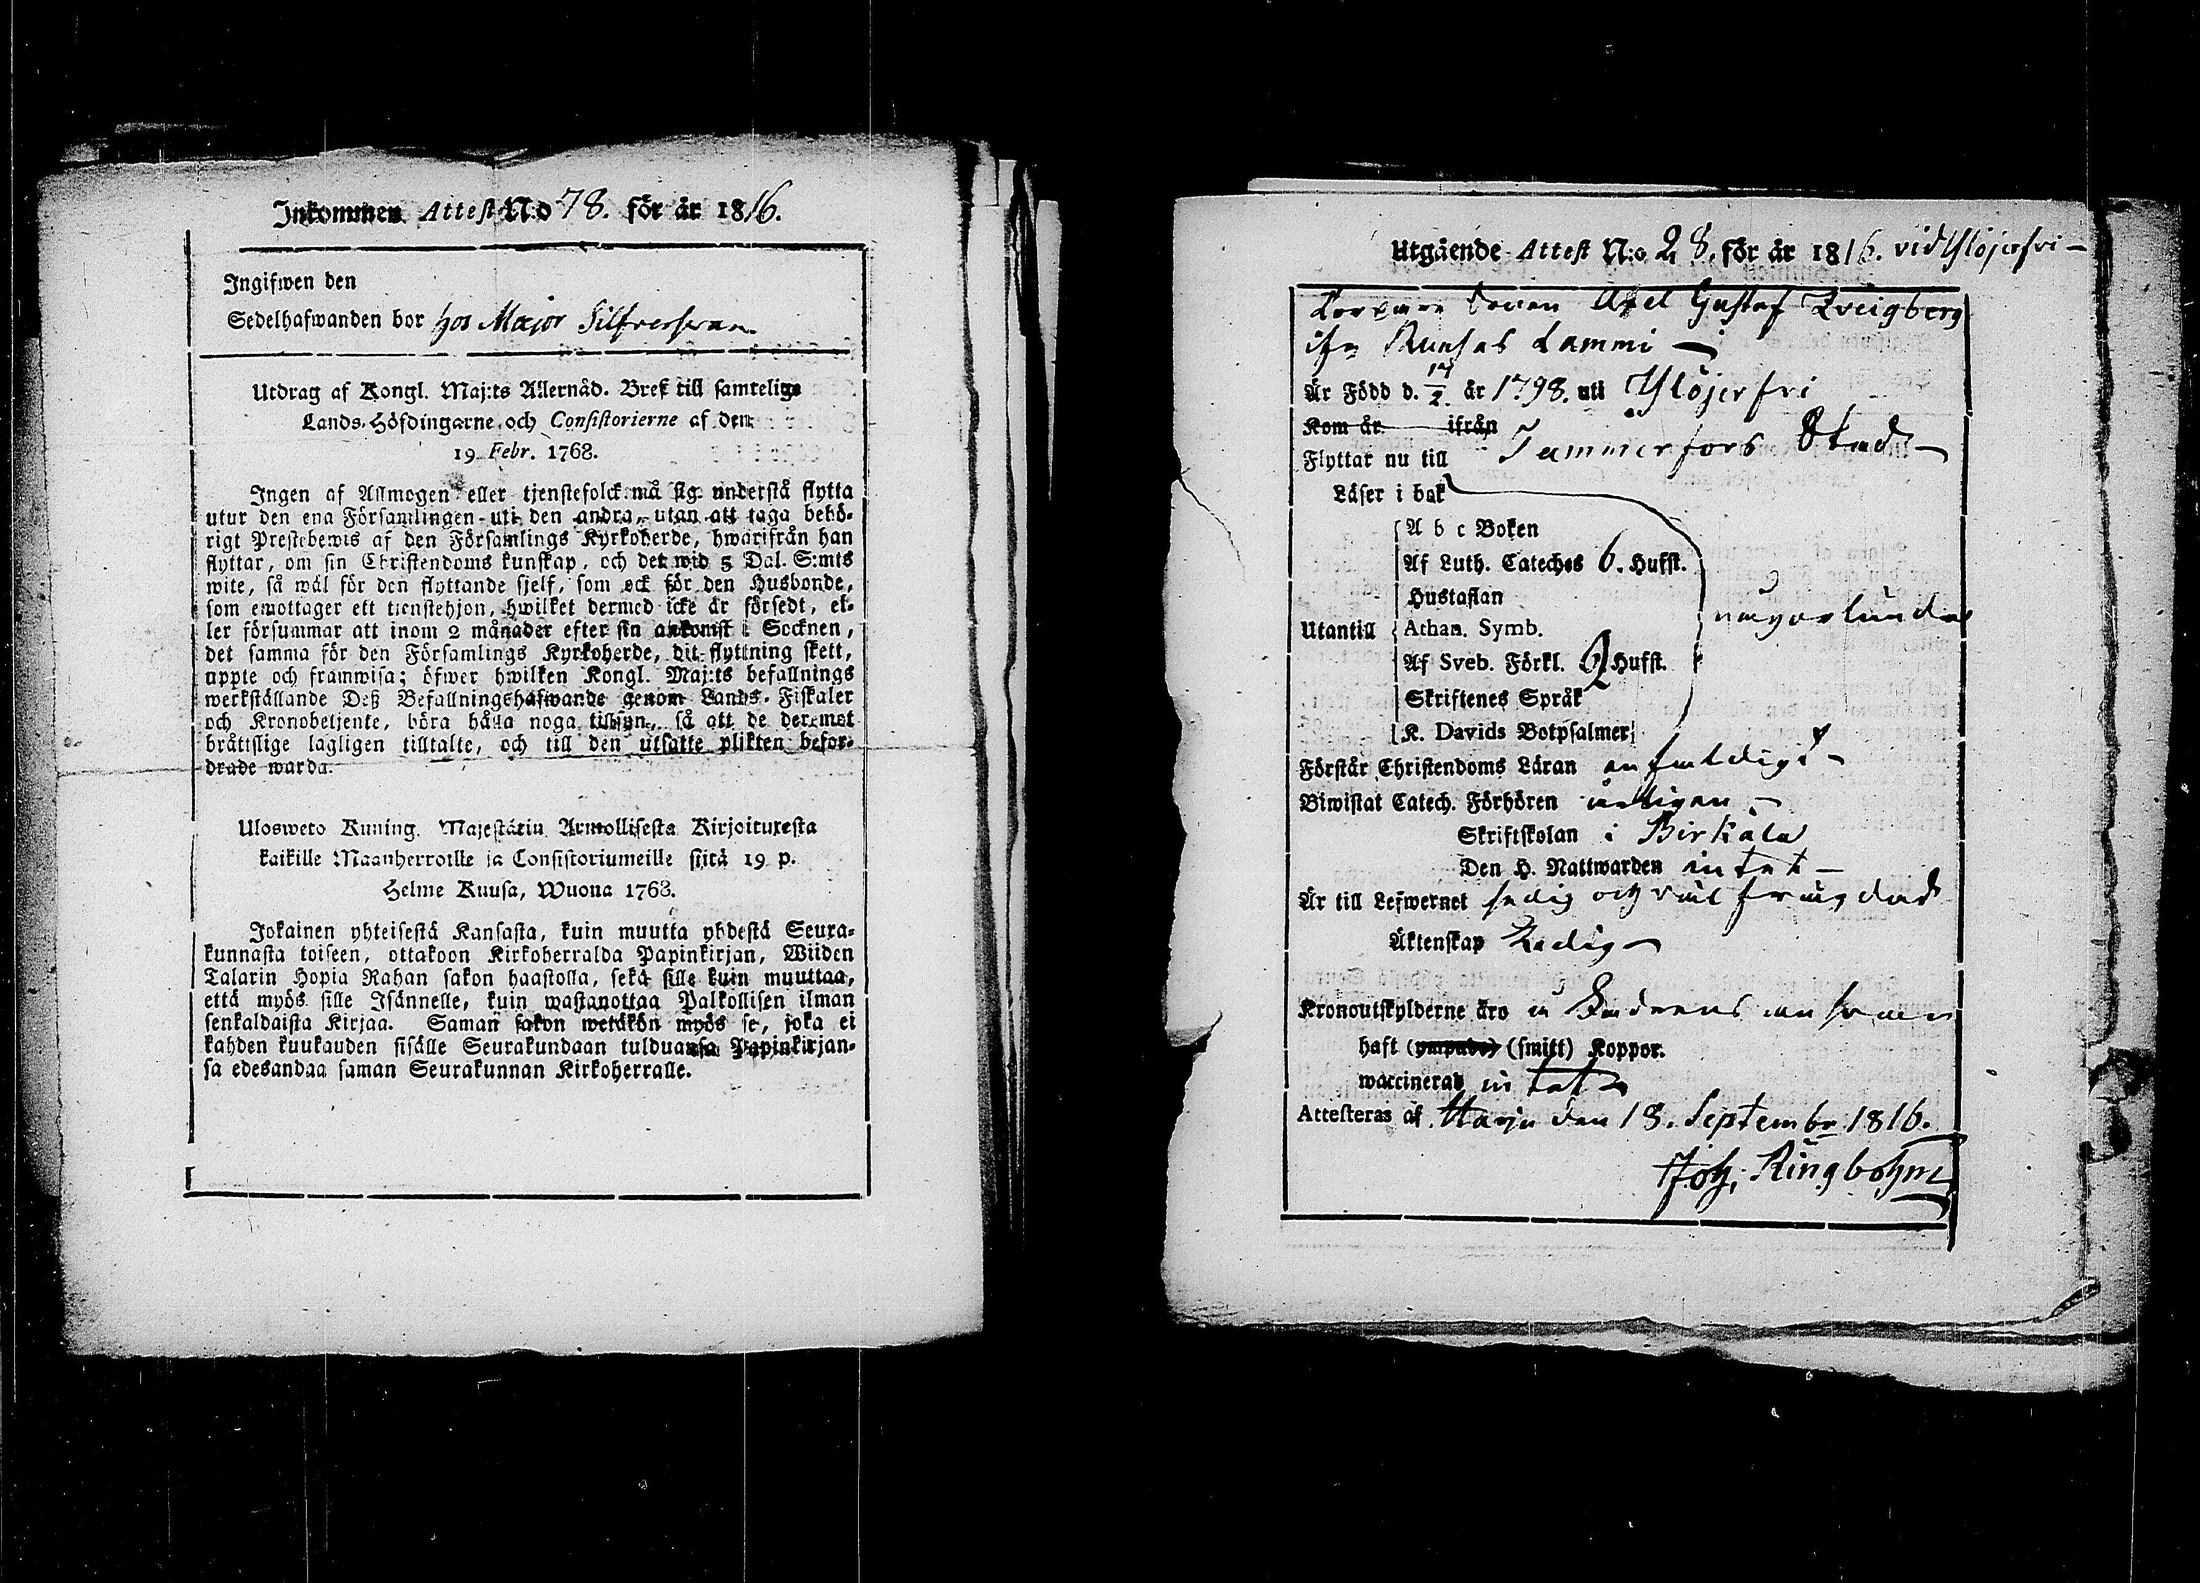 Inkommen Attest N:o 78. för år 1816.
Ingifwen den
Sedelhafwanden bor hos Major Silfversvan
Utdrag af Kongl. Maj:ts Allernåd. Bref till samtelige
Lands-Höfdingarne och Consistorierne af den
19 Febr. 1768.
Ingen af Allmogen eller tjenstefolck må sig understå flytta
utur den ena Församlingen uti den andra, utan att taga behö-
rigt Prestebewis af den Församlings Kyrkoherde, hwarifrån han
flyttar, om sin Christendoms kunskap, och det wid 5 Dal. S:mts
wite, så wäl för den flyttande sjelf, som ock för den Husbonde,
som emottager ett tjenstehjon, hwilket dermed icke är försedt, el-
ler försummar att inom 2 månader efter sin ankomst i Socknen,
det samma för den Församlings Kyrkoherde, dit flyttning skett,
uppte och framwisa; öfwer hwilken Kongl. Maj:ts befallnings
werkställande Deß Befallningshafwande genom Lands-Fiskaler
och Kronobetjente, böra hålla noga tillsyn, så att de deremot
bråttslige lagligen tilltalte, och till den utsatte plikten befor-
drade warda.
Ulosweto Kuning. Majestätin Armollisesta Kirjoituxesta
kaikille Maanherroille ja Consistoriumeille siitä 19 p.
Helme Kuusa, Wuona 1768.
Jokainen yhteisestä Kansasta, kuin muutta yhdestä Seura-
kunnasta toiseen, ottakoon Kirkoherralda Papinkirjan, Wiiden
Talarin Hopia Rahan sakon haastolla, sekä sille kuin muuttaa,
että myös sille Isännelle, kuin wastanottaa Palkollisen ilman
senkaldaista Kirjaa. Saman sakon wetäkön myös se, joka ei
kahden kuukauden sisälle Seurakundaan tulduansa Papinkirjan-
sa edesandaa saman Seurakunnan Kirkoherralle.
Utgående Attest N:o 28. för år 1816. vid Ylöjerfvi —
Sonen Axel Gustaf Qveigberg
ifrån Runsas Lammi —
Är Född d. 14/2. år 1798. uti Ylöjerfvi
Kom år ifrån
Flyttar nu till Tammerfors Stad —
Läser i bok
A b c Boken
Af Luth. Cateches 6. Hufst.
Hustaflan
någorlunda
Utantill Athan. Symb.
Af Sveb. Förkl. 2 Hufst.
Skriftenes Språk
K. Davids Botpsalmer
Förstår Christendoms Läran enfaldigt —
Biwistat Catech. Förhören årligen —
Skriftskolan i Birkala
Den H. Nattwarden intet —
Är till Lefwernet sedig och väl frägdad
Äktenskap Ledig —
Kronoutskylderne äro
haft (ympade) (smitt) Koppor.
waccinerad intet
Attesteras af Harju den 18. September 1816.
Joh. Ringbohm